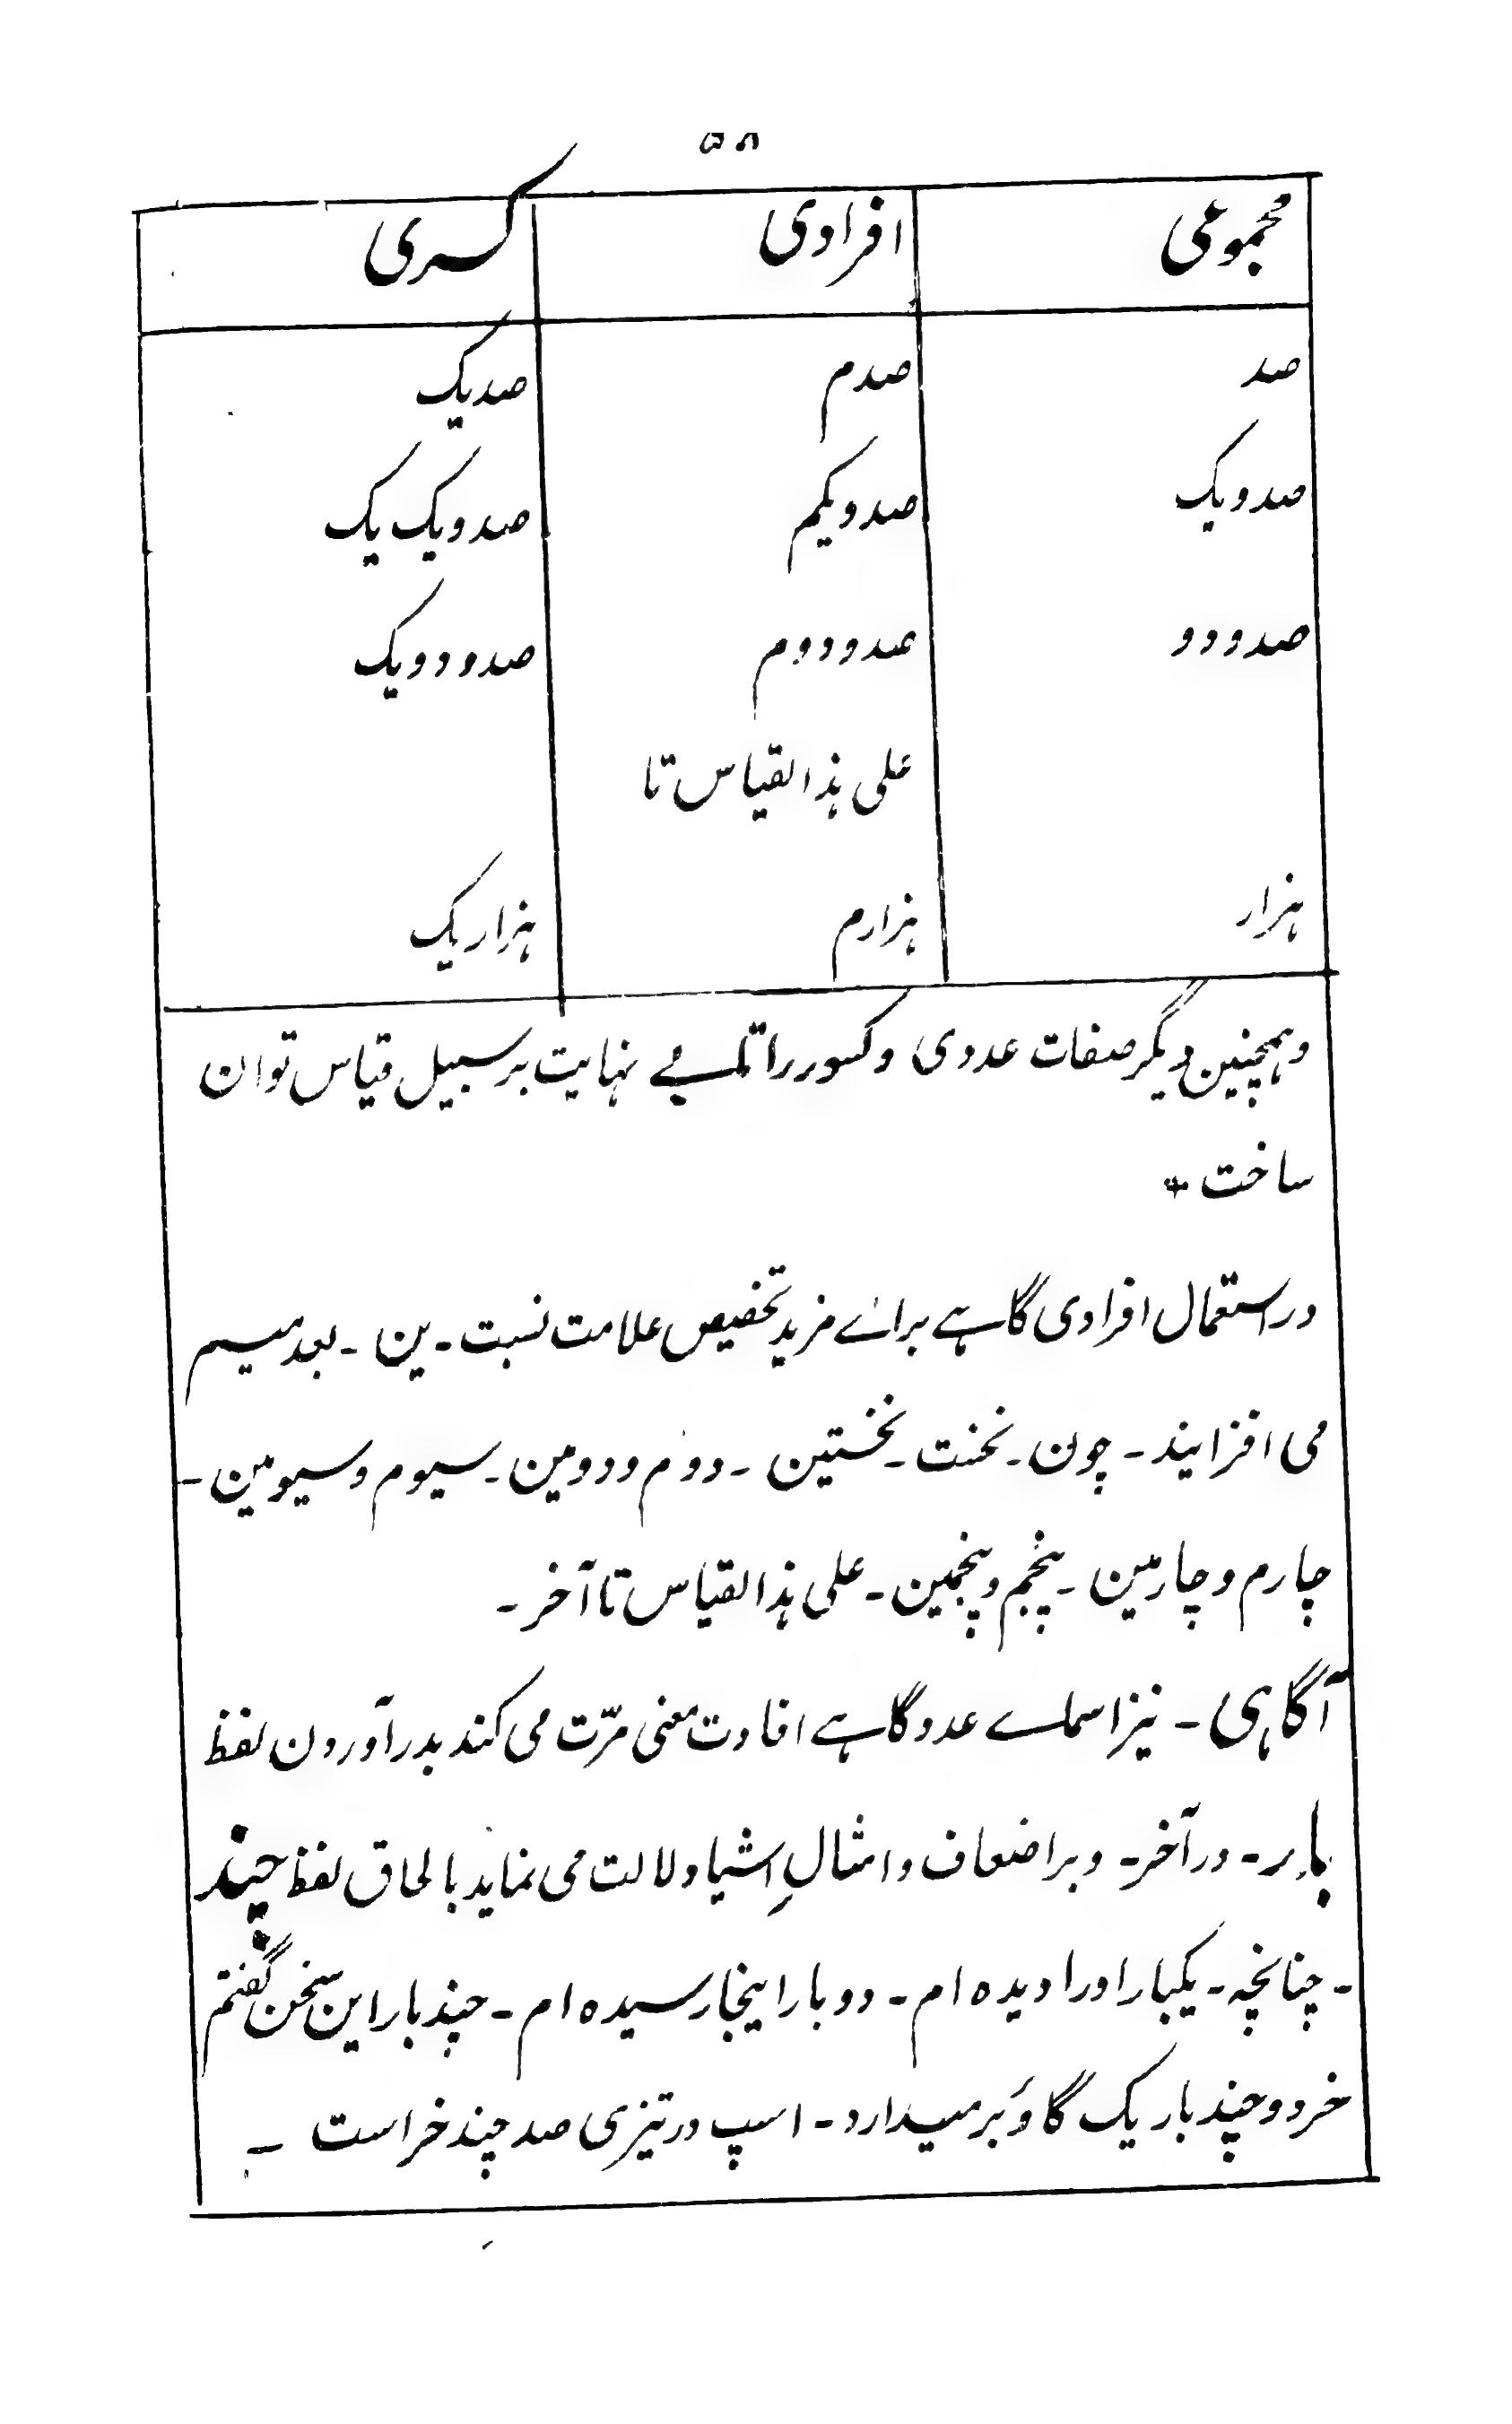 ۵۸
مجموعی افرادی کسری
صد صدم صدیک
صد و یک صد و یکم صد و یک یک
صد و دو صد و دوم صد و دو یک
علی ہذا القیاس تا
ہزار ہزارم ہزار یک
و ہمچنین دیگر صفات عددی و کسور را تا بے نہایت بر سبیل قیاس توان
ساخت *
در استعمال افرادی گاہے براے مزید تخصیص علامت نسبت ۔ ین ۔ بعد میم
می افزایند ۔ چون ۔ نخست ۔ نخستین ۔ دوم و دومین ۔ سیوم و سیومین ۔
چارم و چارمین ۔ پنجم و پنجمین ۔ علی ہذا القیاس تا آخر ۔
آگاہی ۔ نیز اسماے عدد گاہے افادت معنی مرّت می کند بدر آوردن لفظ
بار ۔ در آخر ۔ و بر اضعاف و امثالِ اشیا دلالت می نماید بالحاق لفظ چند
۔ چنانچہ ۔ یکبار او را دیدہ ام ۔ دو بار اینجا رسیدہ ام ۔ چند بار این سخن گفتم
خر دو چند بار یک گاؤ بر میدارد ۔ اسپ در تیزی صد چند خر است ۔